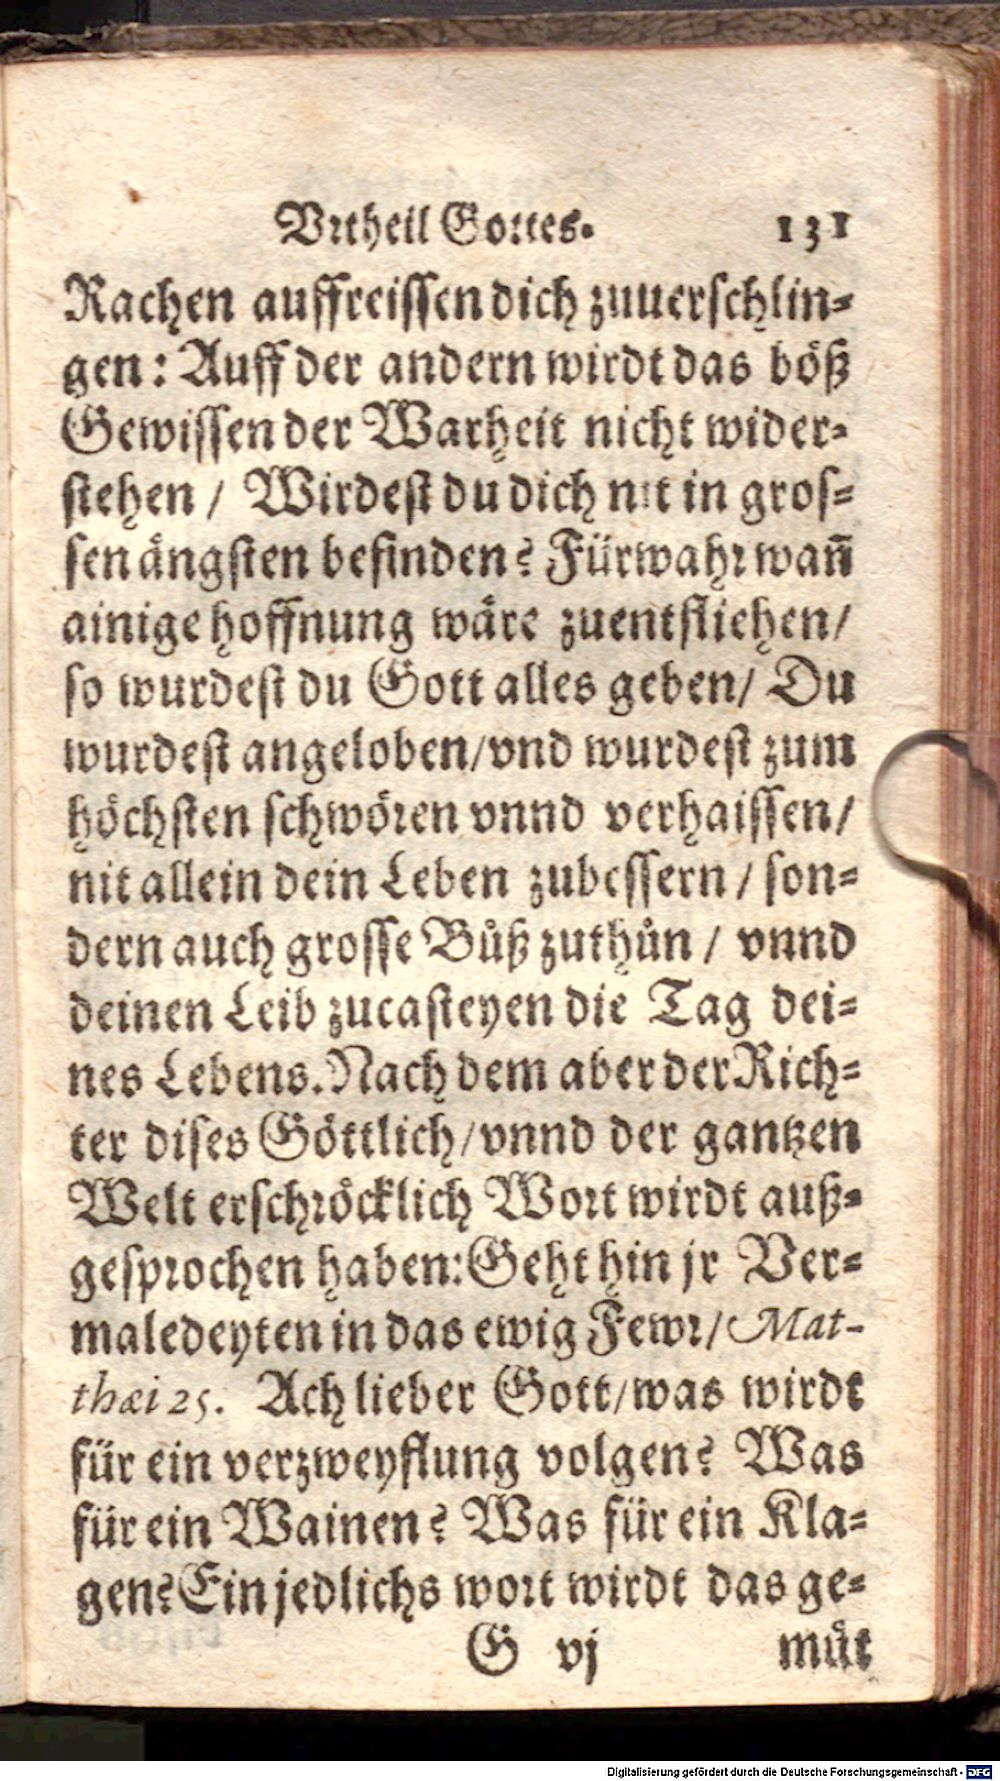 Vrtheil Gottes. 131
Rachen auffreissen dich zuuerschlin-
gen: Auff der andern wirdt das böß
Gewissen der Warheit nicht wider-
stehen / Wirdest du dich nit in gros-
sen ängsten befinden? Fürwahr wañ
ainige hoffnung wäre zuentfliehen/
so wurdest du Gott alles geben/ Du
wurdest angeloben/vnd wurdest zum
höchsten schwören vnnd verhaissen/
nit allein dein Leben zubessern / son-
dern auch grosse Bůß zuthůn / vnnd
deinen Leib zucasteyen die Tag dei-
nes Lebens. Nach dem aber der Rich-
ter dises Göttlich/vnnd der gantzen
Welt erschröcklich Wort wirdt auß-
gesprochen haben: Geht hin jr Ver-
maledeyten in das ewig Fewr/ Mat-
thæi 25. Ach lieber Gott/was wirdt
für ein verzweyflung volgen? Was
für ein Wainen? Was für ein Kla-
gen? Ein jedlichs wort wirdt das ge-
G vj můt
Digitalisierung gefördert durch die Deutsche Forschungsgemeinschaft - DFG